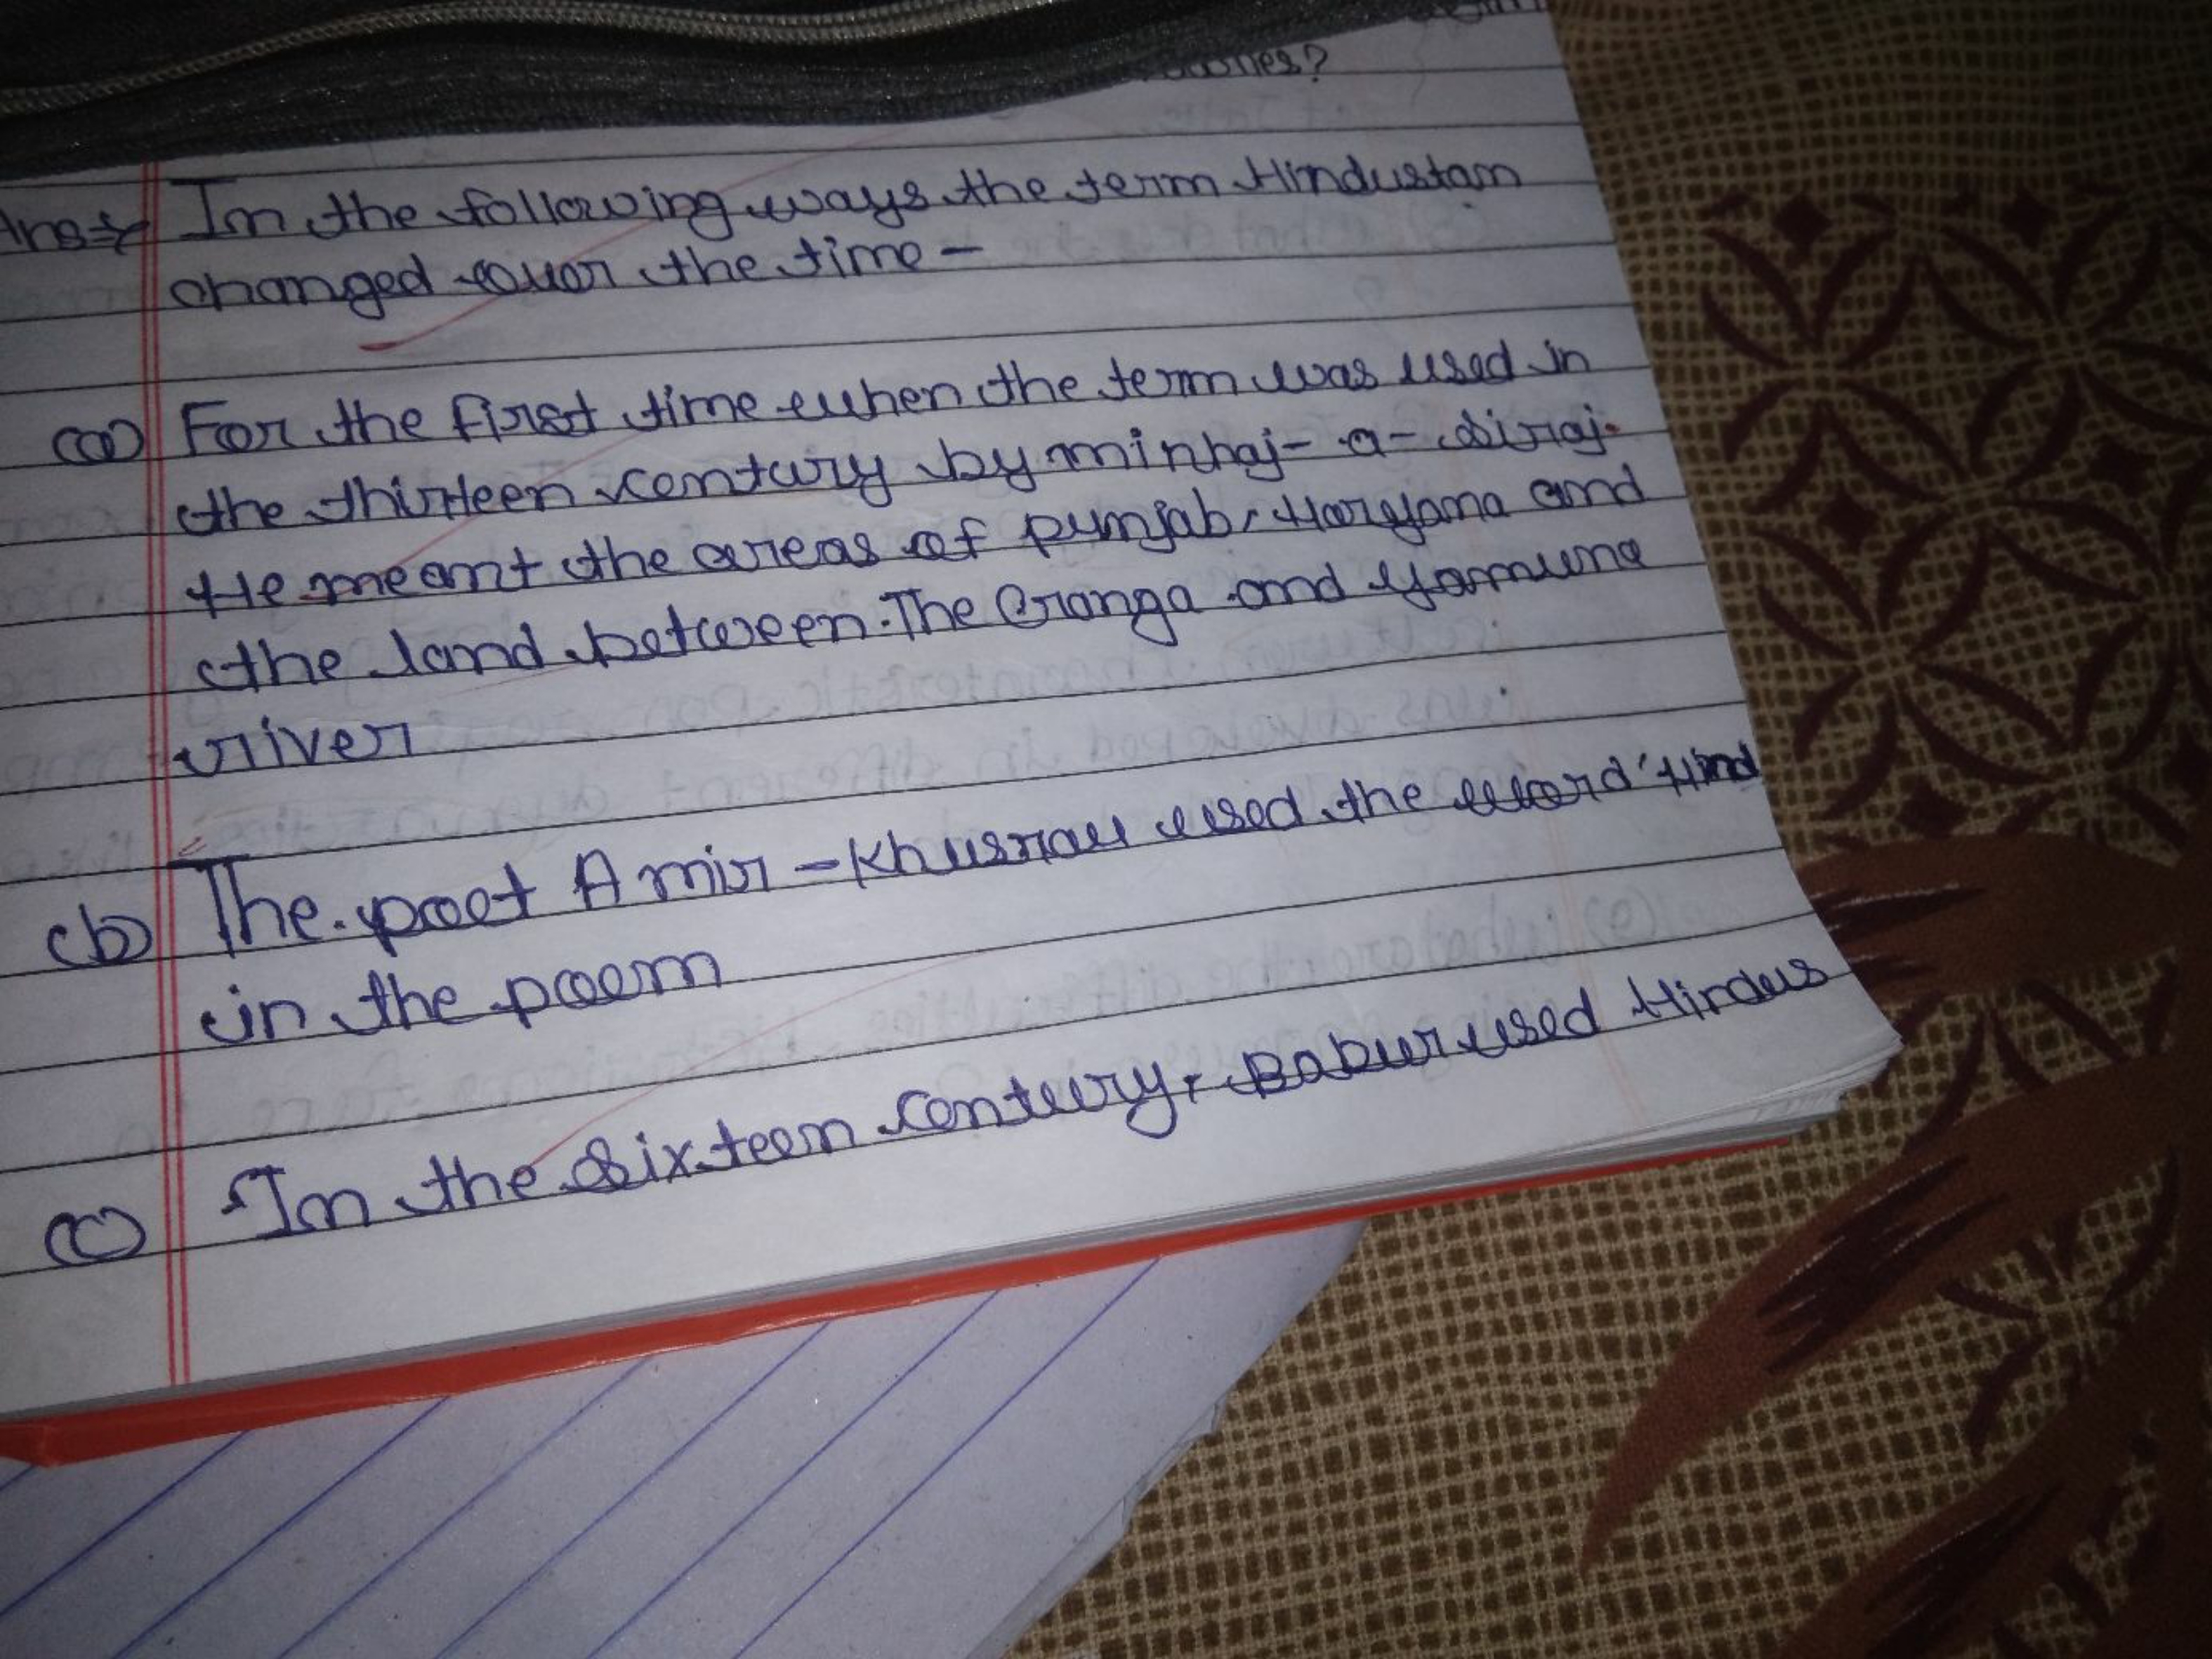 Ans:- In the following ways the term Hindustan
changed over the time -
(a) For the first time when the term was used in
the thirteen century by minhaj-a-siraj.
He meant the areas of punjab, Haryana and
the land between. The Ganga and Yamuna
river
(b) The poet Amir - Khusrau used the word 'Hind
in the poem
(c) In the sixteen century, Babur used Hindus